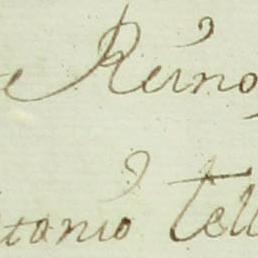 e Reino
ntonio Tell